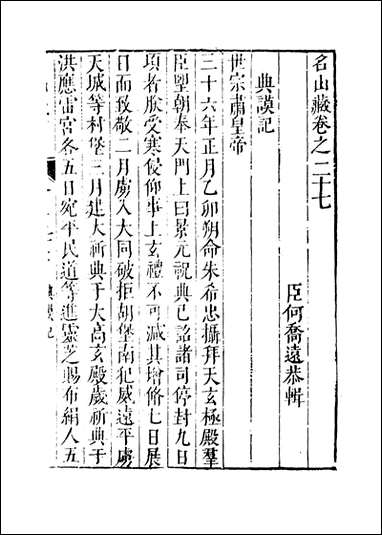 名山藏卷之二十七
臣何喬遠恭輯
典謨記
世宗肅皇帝
三十六年正月乙卯朔命朱希忠攝拜天玄極殿羣
臣朢朝奉天門上曰景元祝典已詔諸司停封九日
項者朕受寒侵仰事上玄禮不可減其增脩七日展
日而致敬二月虜入大同破拒胡堡南犯威遠平虜
天城等村堡三月建大祈典于大高玄殿歲祈典于
洪應雷宮各五日宛平民道等進靈芝賜布絹人五
典謨記